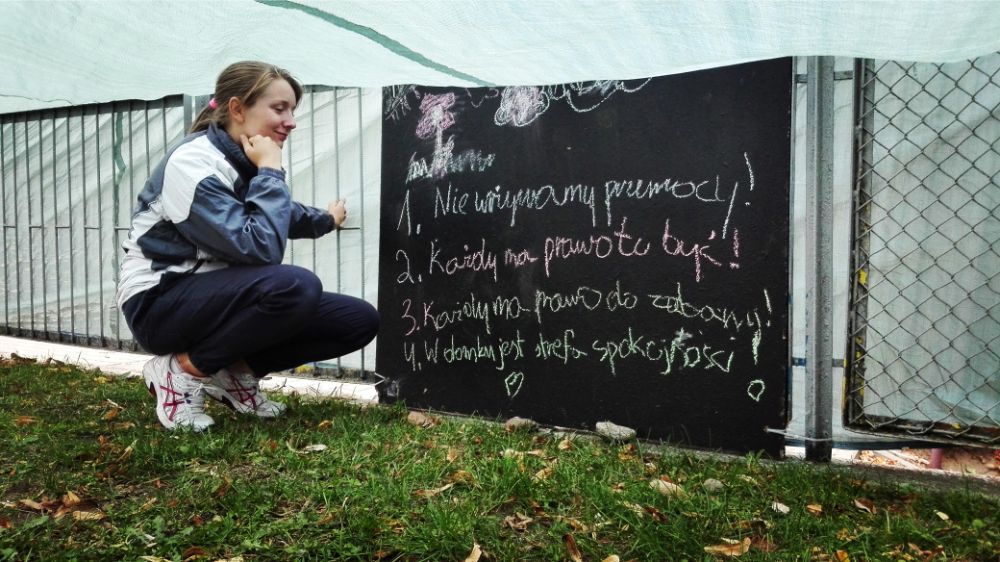 1. Nie używamy przemocy!
2. Każdy ma prawo tu być!
3. Każdy ma prawo do zabawy!
4. W domku jest strefa spokojności!